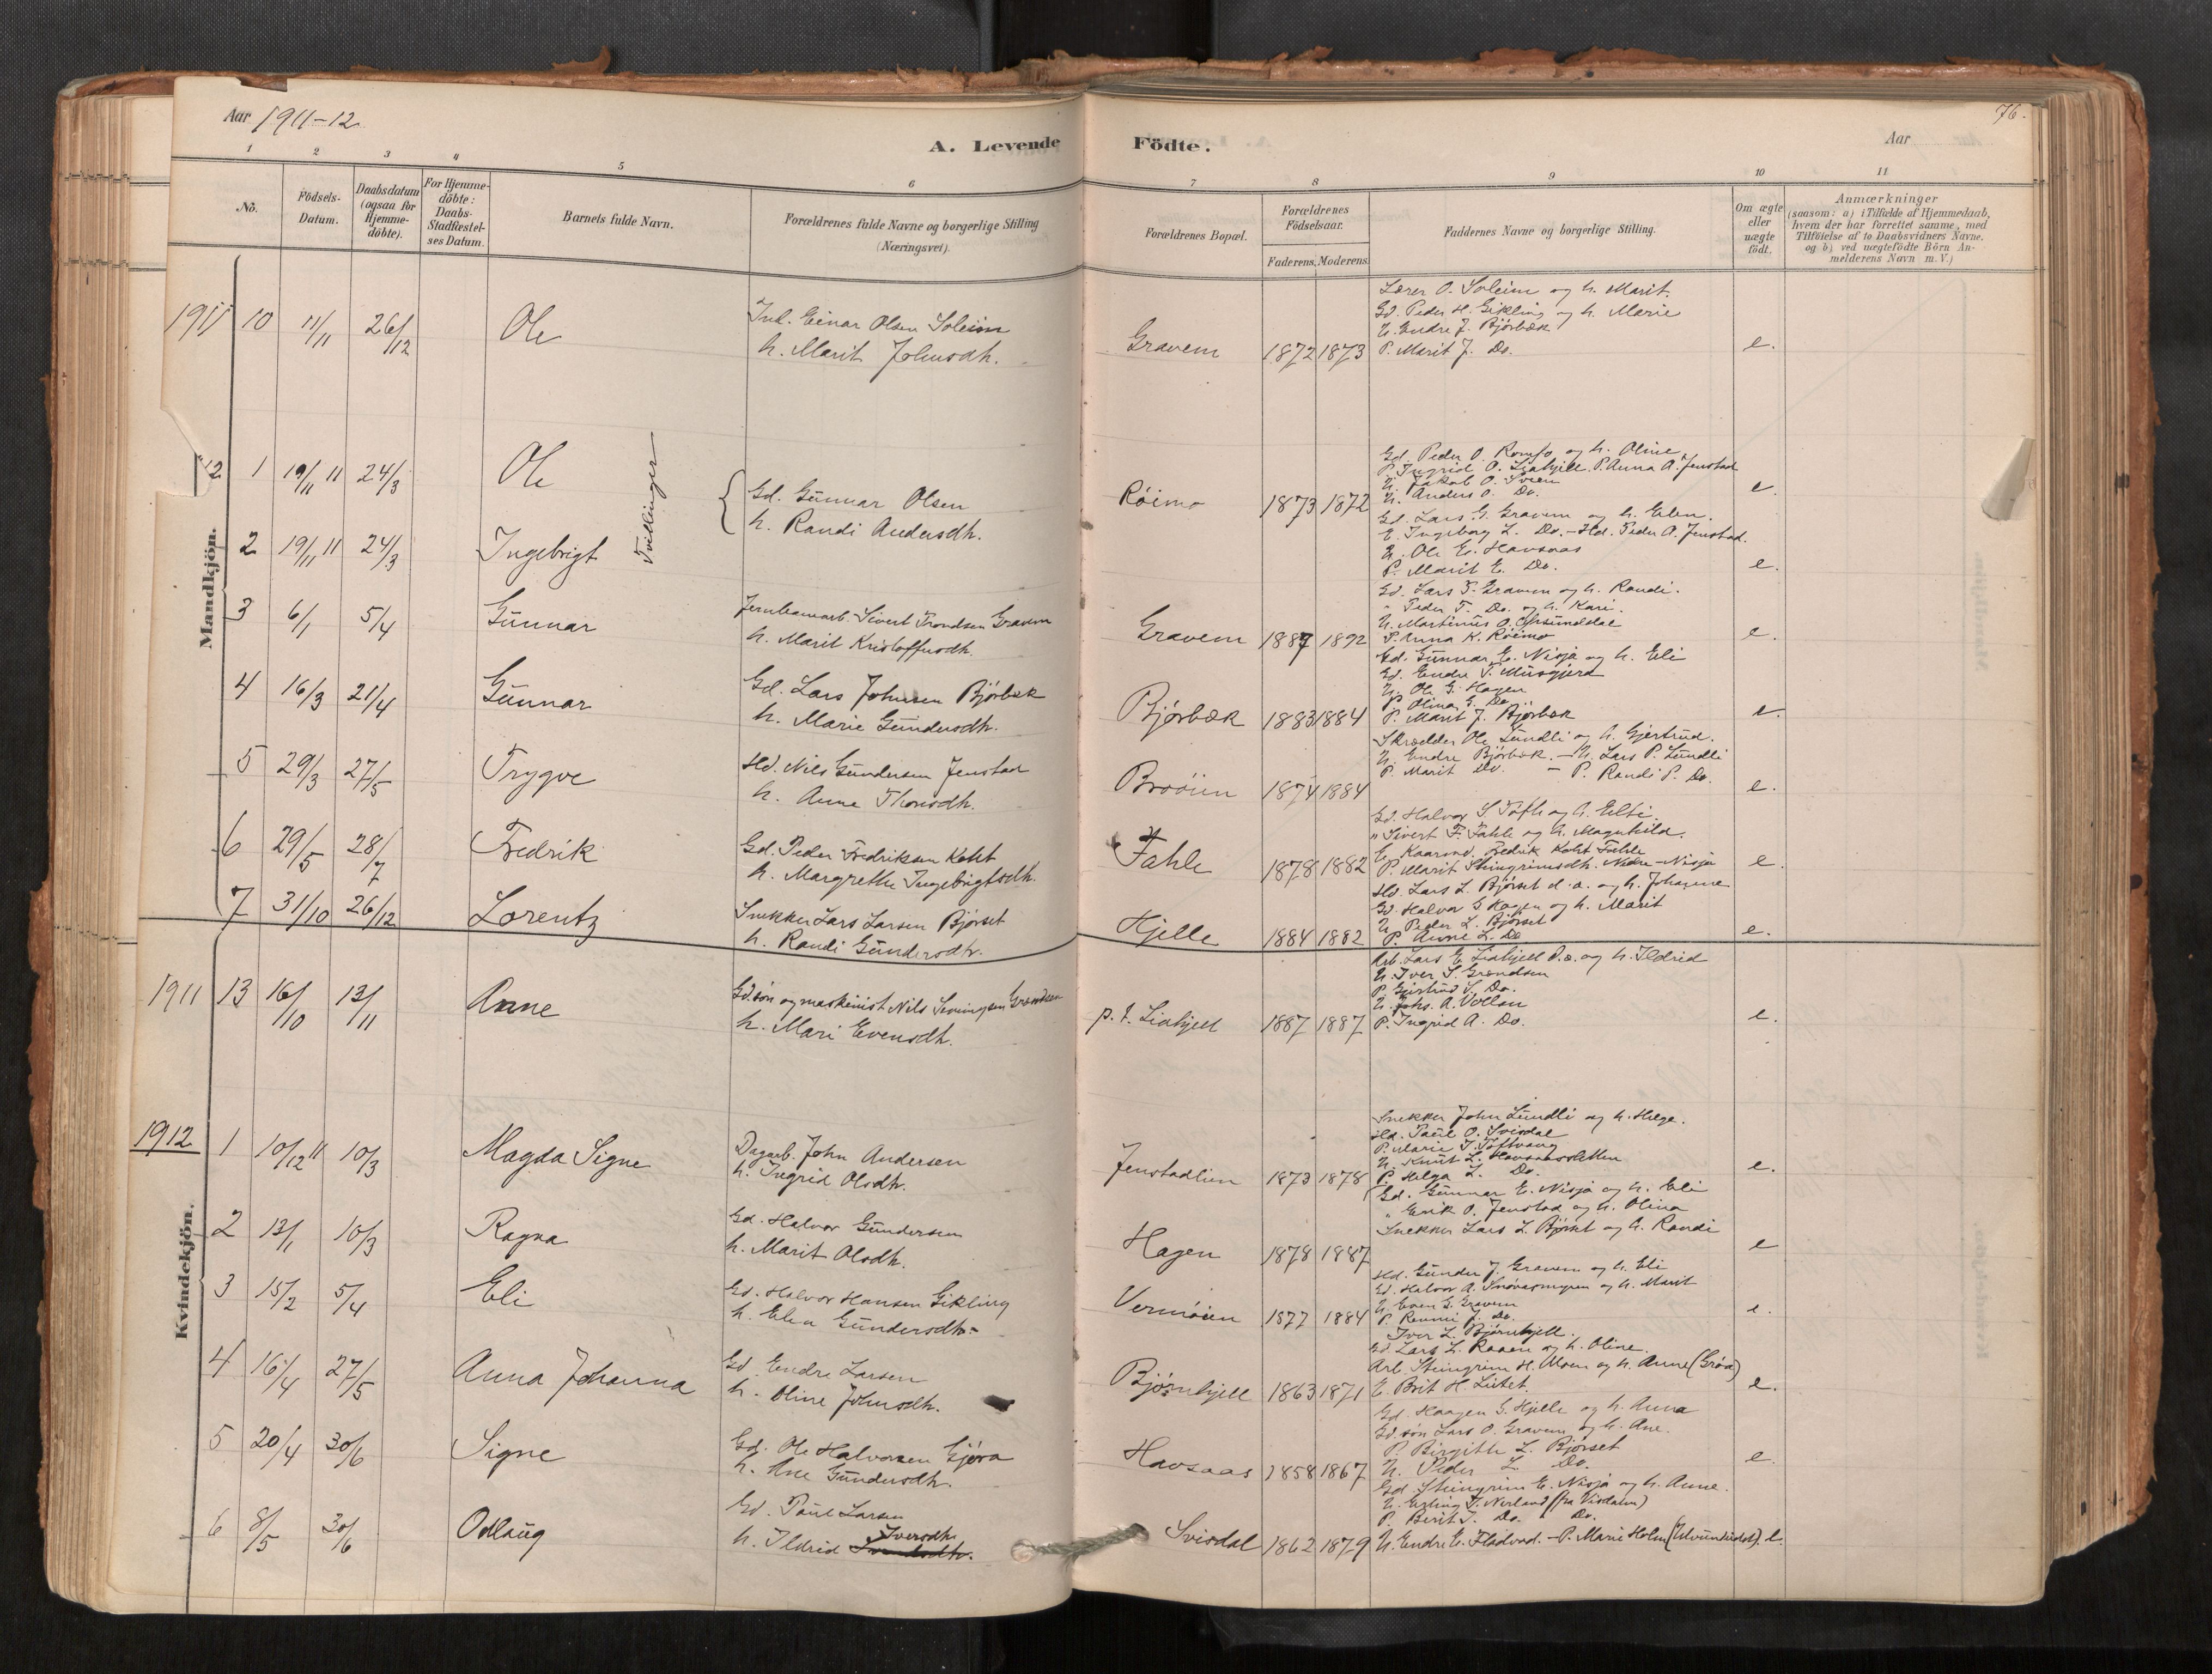 Aar 1911-12
A. Levende Födte.
Aar
76.
1 2 3 4 5 6 7 8 9 10 11
No.
Födsels-Datum.
Daabsdatum (ogsaa for Hjemme-döbte).
For Hjemme-döbte: Daabs-Stadfæstel-ses Datum.
Barnets fulde Navn.
Forældrenes fulde Navne og borgerlige Stilling (Næringsvei).
Forældrenes Bopæl.
Forældrenes Födselsaar.
Faderens. Moderens.
Faddernes Navne og borgerlige Stilling.
Om ægte eller uægte födt.
Anmærkninger
(saasom: a) i Tilfælde af Hjemmedaab, hvem der har forrettet samme, med Tilföielse af to Daabsvidners Navne. og b) ved uægtefödte Börn An-melderens Navn m. V.)
Mandkjön.
1911 10 11/11 26/12 Ole
Ind. Einar Olsen Soleim
h. Marit Johnsdtr.
Gravem 1872 1873
Lærer O. Soleim og h. Marit.
Gd. Peder H. Gikling og h. Marie
U. Endre J. Bjørbæk
P. Marit J. Do.
e.
12 1 19/11 11 24/3 Ole
Tvillinger
Gd. Gunnar Olsen
h. Randi Andersdtr.
Röimo 1873 1872
Gd. Peder O. Romfo og h. Oline
P. Ingrid O. Liahjell. P. Anna A. Jenstad
U. Jakob O. Sveen
U. Anders O. Do.
e.
2 19/11 11 24/3 Ingebrigt
Gd. Lars G. Gravem og h. Elen.
E. Ingeborg L. Do. - Hd. Peder A. Jenstad.
U. Ole E. Havsaas
P. Marit E. Do.
e.
3 6/1 5/4 Gunnar
Jernbanearb. Sivert Trondsen Gravem
h. Marit Kristoffersdtr.
Gravem 1887 1892
Gd. Lars T. Gravem og h. Randi.
" Peder T. Do. og h. Kari.
U. Martinus O. Grunddal
P. Anna K. Röimo
e.
4 16/3 21/4 Gunnar
Gd. Lars Johnsen Bjørbæk
h. Marie Gundersdtr.
Bjørbæk 1883 1884
Gd. Gunnar E. Nisja og h. Eli
Gd. Endre T. Musgjerd
U. Ole G. Hagen
P. Olina G. Do.
P. Marit J. Bjørbæk
e.
5 29/3 27/5 Trygve
Hd. Nils Gundersen Jenstad
h. Anne Thorsdtr.
Broöien 1874 1884
Skrædder Ole Lundli og h. Gjertrud.
U. Endre Bjørbæk. - U. Lars P. Lundli
P. Marit Do. - P. Randi P. Do.
e.
6 29/5 28/7 Fredrik
Gd. Peder Fredriksen Koht
h. Margrethe Ingebrigtsdtr.
Fahle 1878 1882
Gd. Halvor S. Tofte og h. Elti.
" Sivert F. Fahle og h. Magnhild.
E. Kaarmd. Fredrik Koht Fahle
P. Marit Steingrimsdtr. Nedre-Nisja
e.
7 31/10 26/12 Lorentz
Snekker Lars Larsen Bjørset
h. Randi Gundersdtr.
Hjelle 1884 1882
Hd. Lars L. Bjørset d. æ. og h. Johanne
Gd. Halvor G. Hagen og h. Marit
U. Peder L. Bjørset
P. Anne L. Do
e.
Kvindekjön.
1911 13 16/10 13/11 Anne
Gd.søn og maskinist Nils Sevrinsen Grændsen
h. Mari Evensdtr.
p. t. Liahjell 1887 1887
Arb. Lars E. Liahjell d.æ. og h. Ildrid
U. Iver S. Grændsen
P. Gjertrud S. Do.
U. Johs. A. Vollan
P. Ingrid A. Do.
e.
1912 1 10/12 11 10/3 Magda Signe
Dagarb. John Andersen
h. Ingrid Olsdtr.
Jenstadlien 1873 1878
Snekker John Lundli og h. Hege.
Hd. Paul O. Svisdal
P. Marie J. Toftvang
U. Knut L. Havsaassletten
P. Helga L. Do.
e.
2 13/1 10/3 Ragna
Gd. Halvor Gundersen
h. Marit Olsdtr.
Hagen 1878 1887
Gd. Gunnar E. Nisja og h. Eli
" Erik O. Jenstad og h. Olina
Snekker Lars L. Bjørset og h. Randi
e
3 15/2 5/4 Eli
Gd. Halvor Hansen Gikling
h. Elen Gundersdtr.
Vermöien 1877 1884
Hd. Gunder J. Gravem og h. Eli
Gd. Halvor A. Snøvasmyren og h. Marit
U. Even G. Gravem
P. Rennie J. Do.
e.
4 16/4 27/5 Anna Johanna
Gd. Endre Larsen
h. Oline Johnsdtr.
Bjørnhjell 1863 1871
Iver L. Bjørnhjell.
Gd. Lars L. Raaen og h. Oline.
Arb. Steingrim H. Moen og h. Anne (Grøa)
E. Brit H. Lütet.
e.
5 20/4 30/6 Signe
Gd. Ole Halvorsen Gjøra
h. Ane Gundersdtr.
Havsaas 1858 1867
Gd. Haagen G. Hjelle og h. Anna
Gd.søn Lars O. Gravem og h. Ane.
P. Birgith L. Bjørset
U. Peder L. Do.
e.
6 8/5 30/6 Odlaug
Gd. Paul Larsen
h. Ildrid Iversdtr.
Svisdal 1862 1879
Gd. Steingrim E. Nisja og h. Anne.
U. Erling I. Nerland (fra Visdalen)
P. Berit I. Do. Do.
U. Endre E. Flatvad. - P. Marie Holm (Ulvundeidet). e.